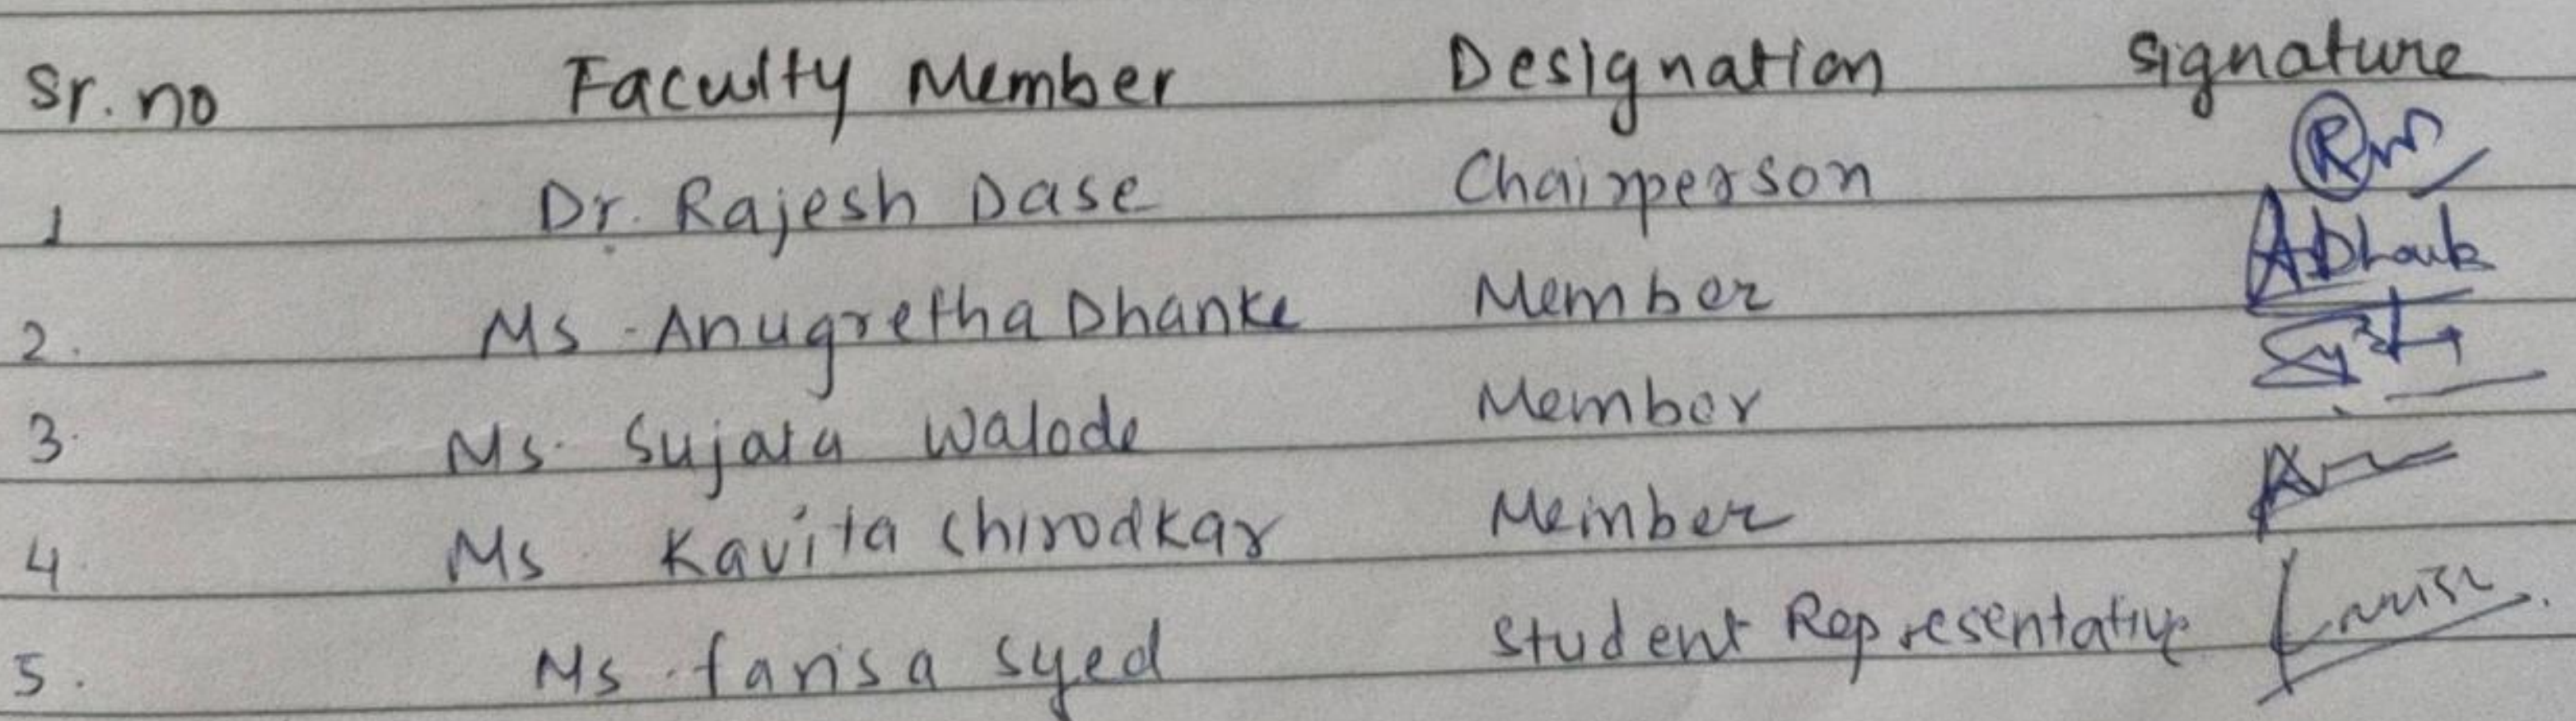 Sr. no Faculty Member Designation Signature
1 Dr. Rajesh Dase Chairperson
2. Ms. Anugretha Dhanke Member
3. Ms. Sujata Walode Member
4 Ms. Kavita Chirodkar Member
5. Ms. farisa syed Student Representative